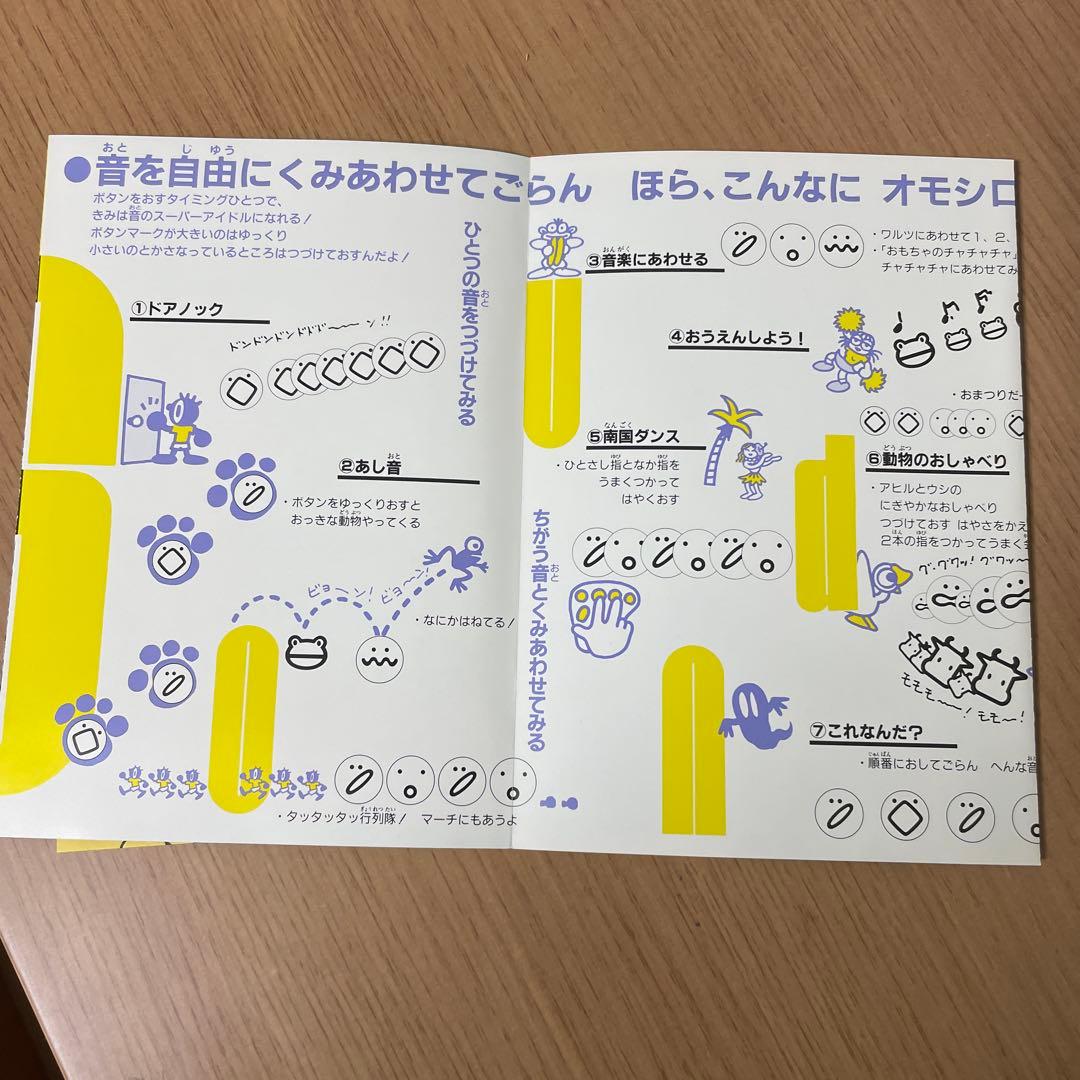 ●音を自由にくみあわせてごらん　ほら、こんなに オモシロ
おと じゆう
ボタンをおすタイミングひとつで、
きみは音のスーパーアイドルになれる！
おと
ボタンマークが大きいのはゆっくり
小さいのとかさなっているところはつづけておすんだよ！
ひとつの音をつづけてみる
おと
①ドアノック
ドンドンドンドドド〜〜ン!!
②あし音
おと
・ボタンをゆっくりおすと
おっきな動物やってくる
どうぶつ
ビョ〜ン! ビョ〜ン!
・なにかはねてる！
・タッタッタッ行列隊！　マーチにもあうよ
ぎょうれつたい
ちがう音とくみあわせてみる
おと
③音楽にあわせる
おんがく
・ワルツにあわせて1、2、
・「おもちゃのチャチャチャ」
チャチャチャにあわせてみ
④おうえんしよう！
・おまつりだー
⑤南国ダンス
なんごく
・ひとさし指となか指を
ゆび ゆび
うまくつかって
はやくおす
⑥動物のおしゃべり
どうぶつ
・アヒルとウシの
にぎやかなおしゃべり
つづけておす はやさをかえ
2本の指をつかってうまく
ほん ゆび
グ・グワッ! グワッ〜
モモモ〜〜! モモ〜!
⑦これなんだ？
・順番におしてごらん　へんな音
じゅんばん おと